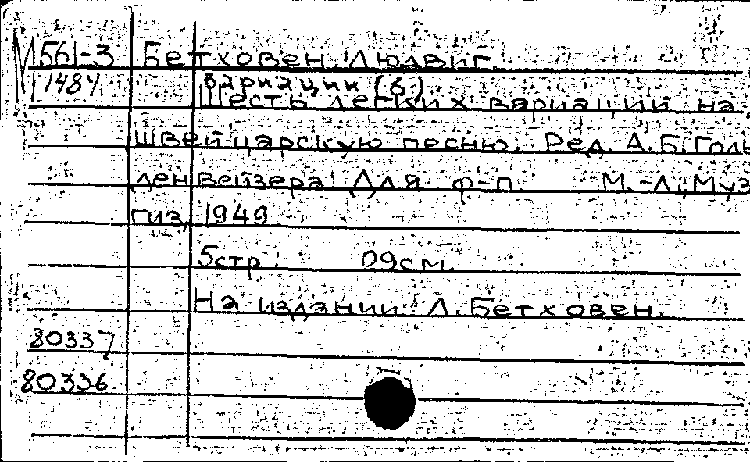 М 561-3 Бетховен, Людвиг.
1484 Вариации (6)
Шесть легких вариаций на
швейцарскую песню. Ред. А.Б.Голь
денвейзера. Для ф-п. М.-Л., Муз
гиз, 1949
5стр. 29см.
На издании: Л.Бетховен.
80337
80336